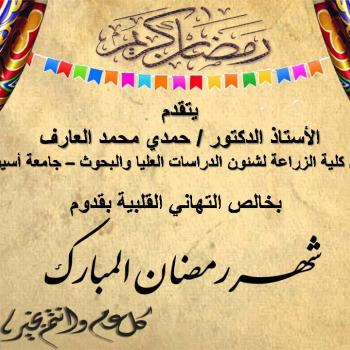 رمضان كريم
يتقدم
الأستاذ الدكتور / حمدي محمد العارف
كلية الزراعة لشئون الدراسات العليا والبحوث – جامعة أسيو
بخالص التهاني القلبية بقدوم
شهر رمضان المبارك
كل عام وانتم بخير